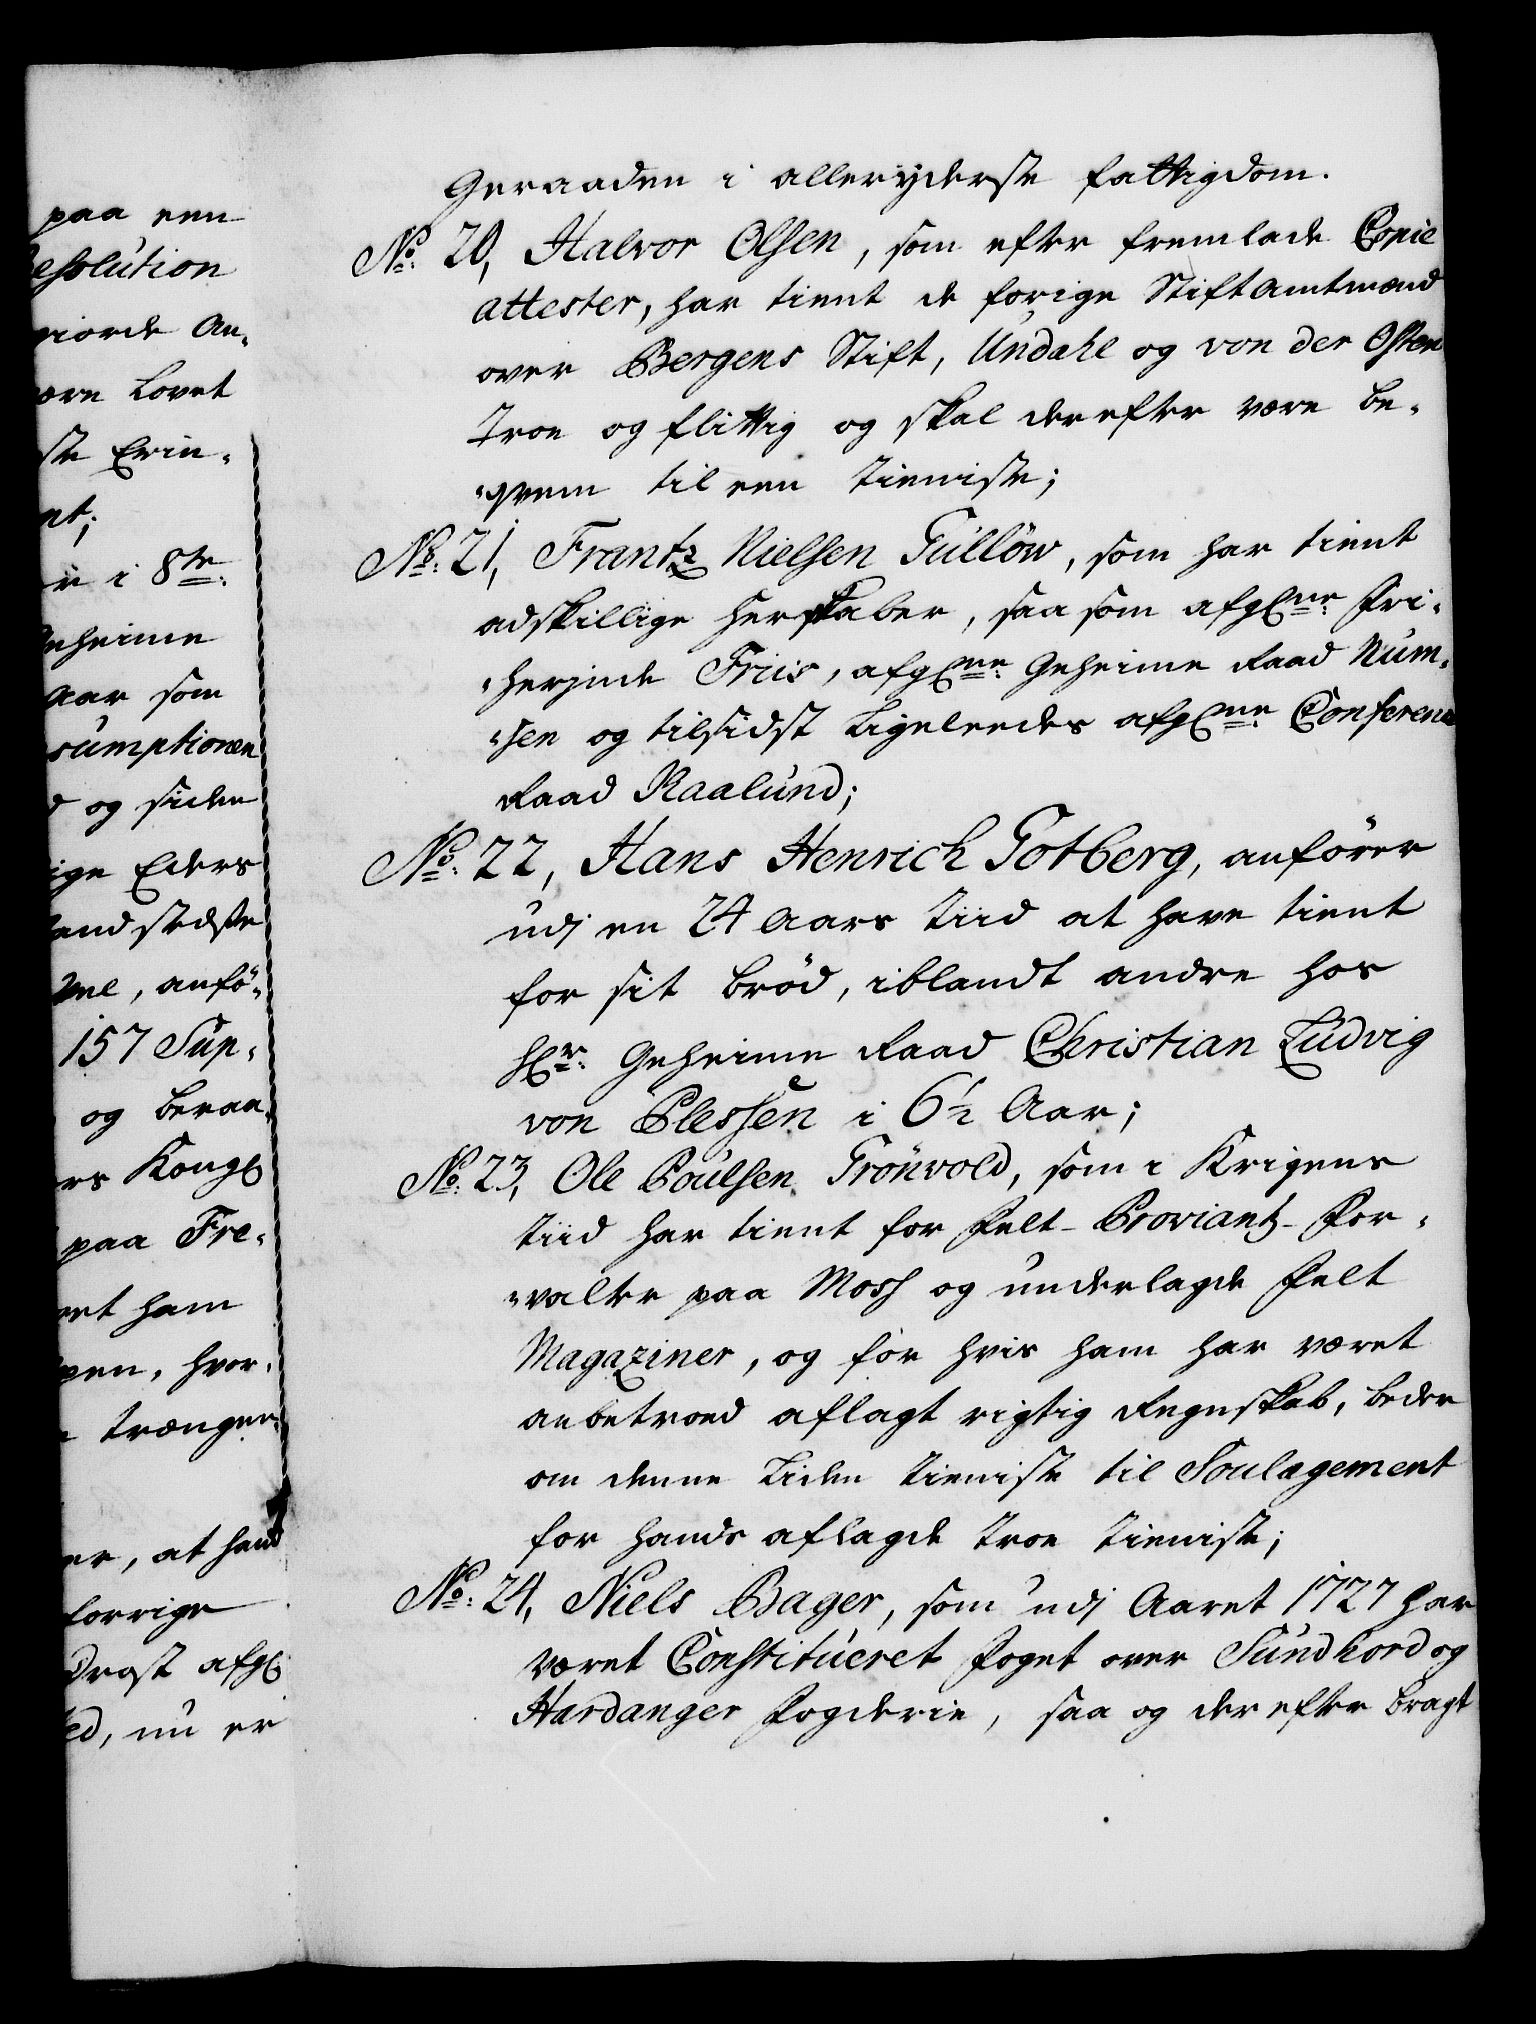 paa een
esolution
giorde An-
være Lovet
ste Erin-
nt;
i 8te:
Geheime
Aar som
sumptionen
og siden
ige Eders
and stedste
, anfö-
157 Sup-
og beraa-
rs Kongl:
paa Fre-
ret ham
pen, hvor-
trænger
er, at hand
forrige
Drost afg:
ed, nu er
Geraaden i alleryderste fattigdom.
No: 20, Halvor Olsen, som efter fremlade Copie
attester, har tient de forige Stiftamtmænd
over Bergens Stift, Undahl og von der Osten
troe og flittig og skal derefter være be-
qvem til een tieniste;
No: 21, Frantz Nielsen Güllöw, som har tient
adskillige herskaber, saa som afgl:ne: Fri-
herjnde Friis, afgl:ne: Geheime Raad Num-
sen og tilsidst Ligeleedes afgl:ne: Conference
Raad Raalund;
No: 22, Hans Henrich Gotberg, anförer
udj en 24 Aars tiid at have tient
for sit bröd, iblandt andre hos
Hr: Geheime Raad Christian Ludvig
von Plessen i 6½ Aar;
No: 23, Ole Poulsen Grönvold, som i Krigens
tiid har tient for Felt-Proviantz-For-
valter paa Moss og underlagde Felt
Magaziner, og for hvis ham har været
anbetroed aflagt rigtig Regnskab, beder
om denne Liden tieniste til Soulagement
for hands aflagde troe tieniste;
No: 24, Niels Bager, som udj Aaret 1727 har
været Constitueret Foget over Sundhord og
Hardanger Fogderie, saa og derefter bragt